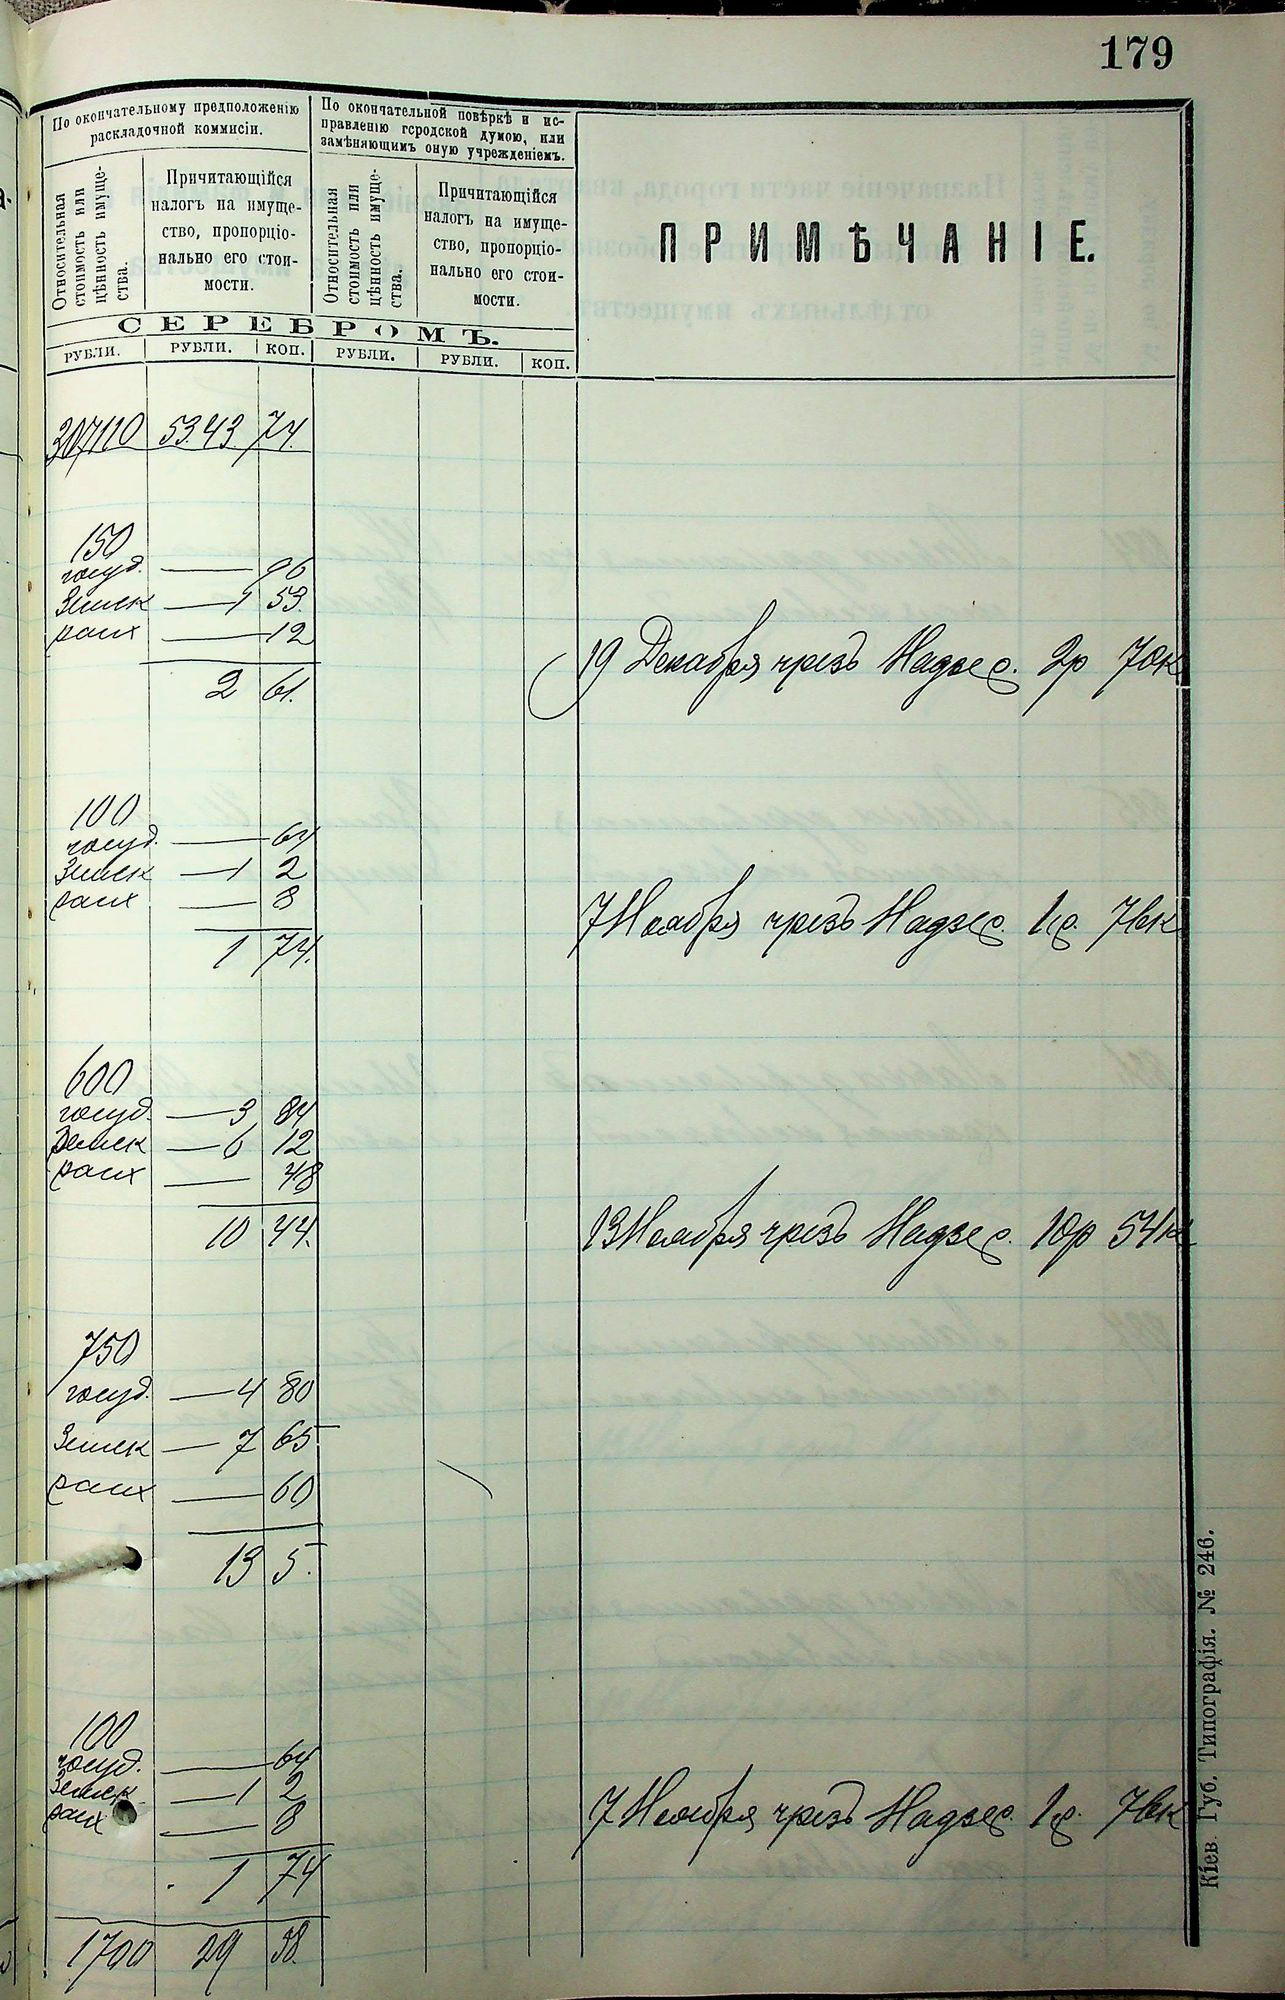 179
По окончательному предположенію
раскладочной коммисіи.
По окончательной повѣркѣ и ис-
правленію городской думою, или
замѣняющимъ оную учрежденіемъ.
Относительная
стоимость или
цѣнность имуще-
ства.
Причитающійся
налогъ на имуще-
ство, пропорціо-
нально его стои-
мости.
Относительная
стоимость или
цѣнность имуще-
ства.
Причитающійся
налогъ на имуще-
ство, пропорціо-
нально его стои-
мости.
ПРИМѢЧАНІЕ.
СЕРЕБРОМЪ.
РУБЛИ. РУБЛИ. КОП. РУБЛИ. РУБЛИ. КОП.
307110 5343 74.
150
госуд. — 96
Земск — 1 53.
раск — 12
2 61.
19 Декабря чрезъ Надзс. 2р 70к
100
госуд. — 64
Земск — 1 2
раск — 8
1 74.
7 Ноября чрезъ Надзс. 1р. 76к
600
госуд. — 3 84
Земск — 6 12
раск — 48
10 44.
13 Ноября чрезъ Надзс. 10р 54к
750
госуд. — 4 80
Земск — 7 65
раск — 60
13 5.
100
госуд. — 64
Земск — 1 2
раск — 8
1 74
7 Ноября чрезъ Надзс. 1р. 76к
1700 29 58.
Кіев. Губ. Типографія. № 246.